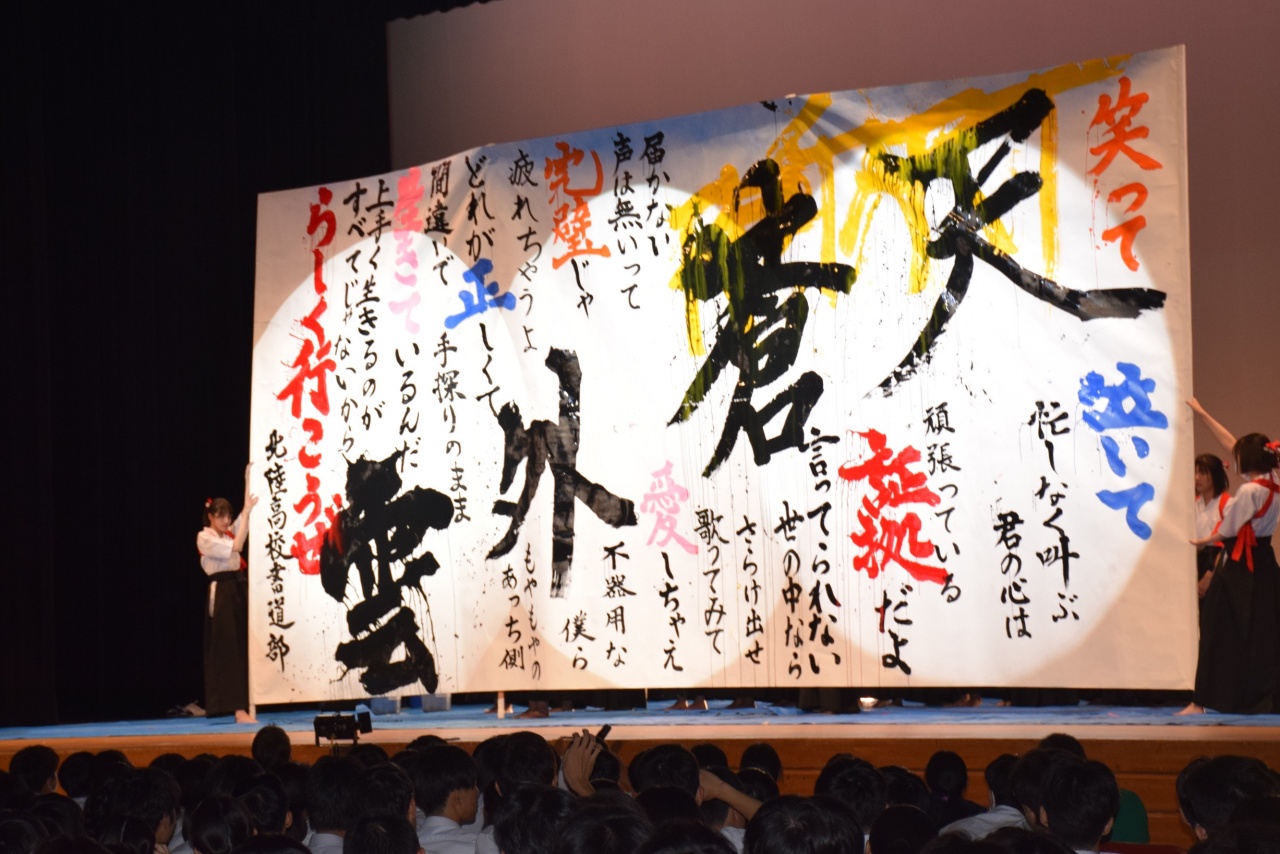 笑って
泣いて
忙しなく叫ぶ
君の心は
頑張っている
証拠だよ
天
蒼
言ってられない
世の中なら
さらけ出せ
歌ってみて
愛しちゃえ
届かない
声は無いって
不器用な
僕ら
完璧じゃ
疲れちゃうよ
外
もやもやの
あっち側
どれが正しくて
間違いで
手探りのまま
生きているんだ
上手く生きるのが
すべてじゃないから
雲
らしく行こうぜ
北陸高校書道部